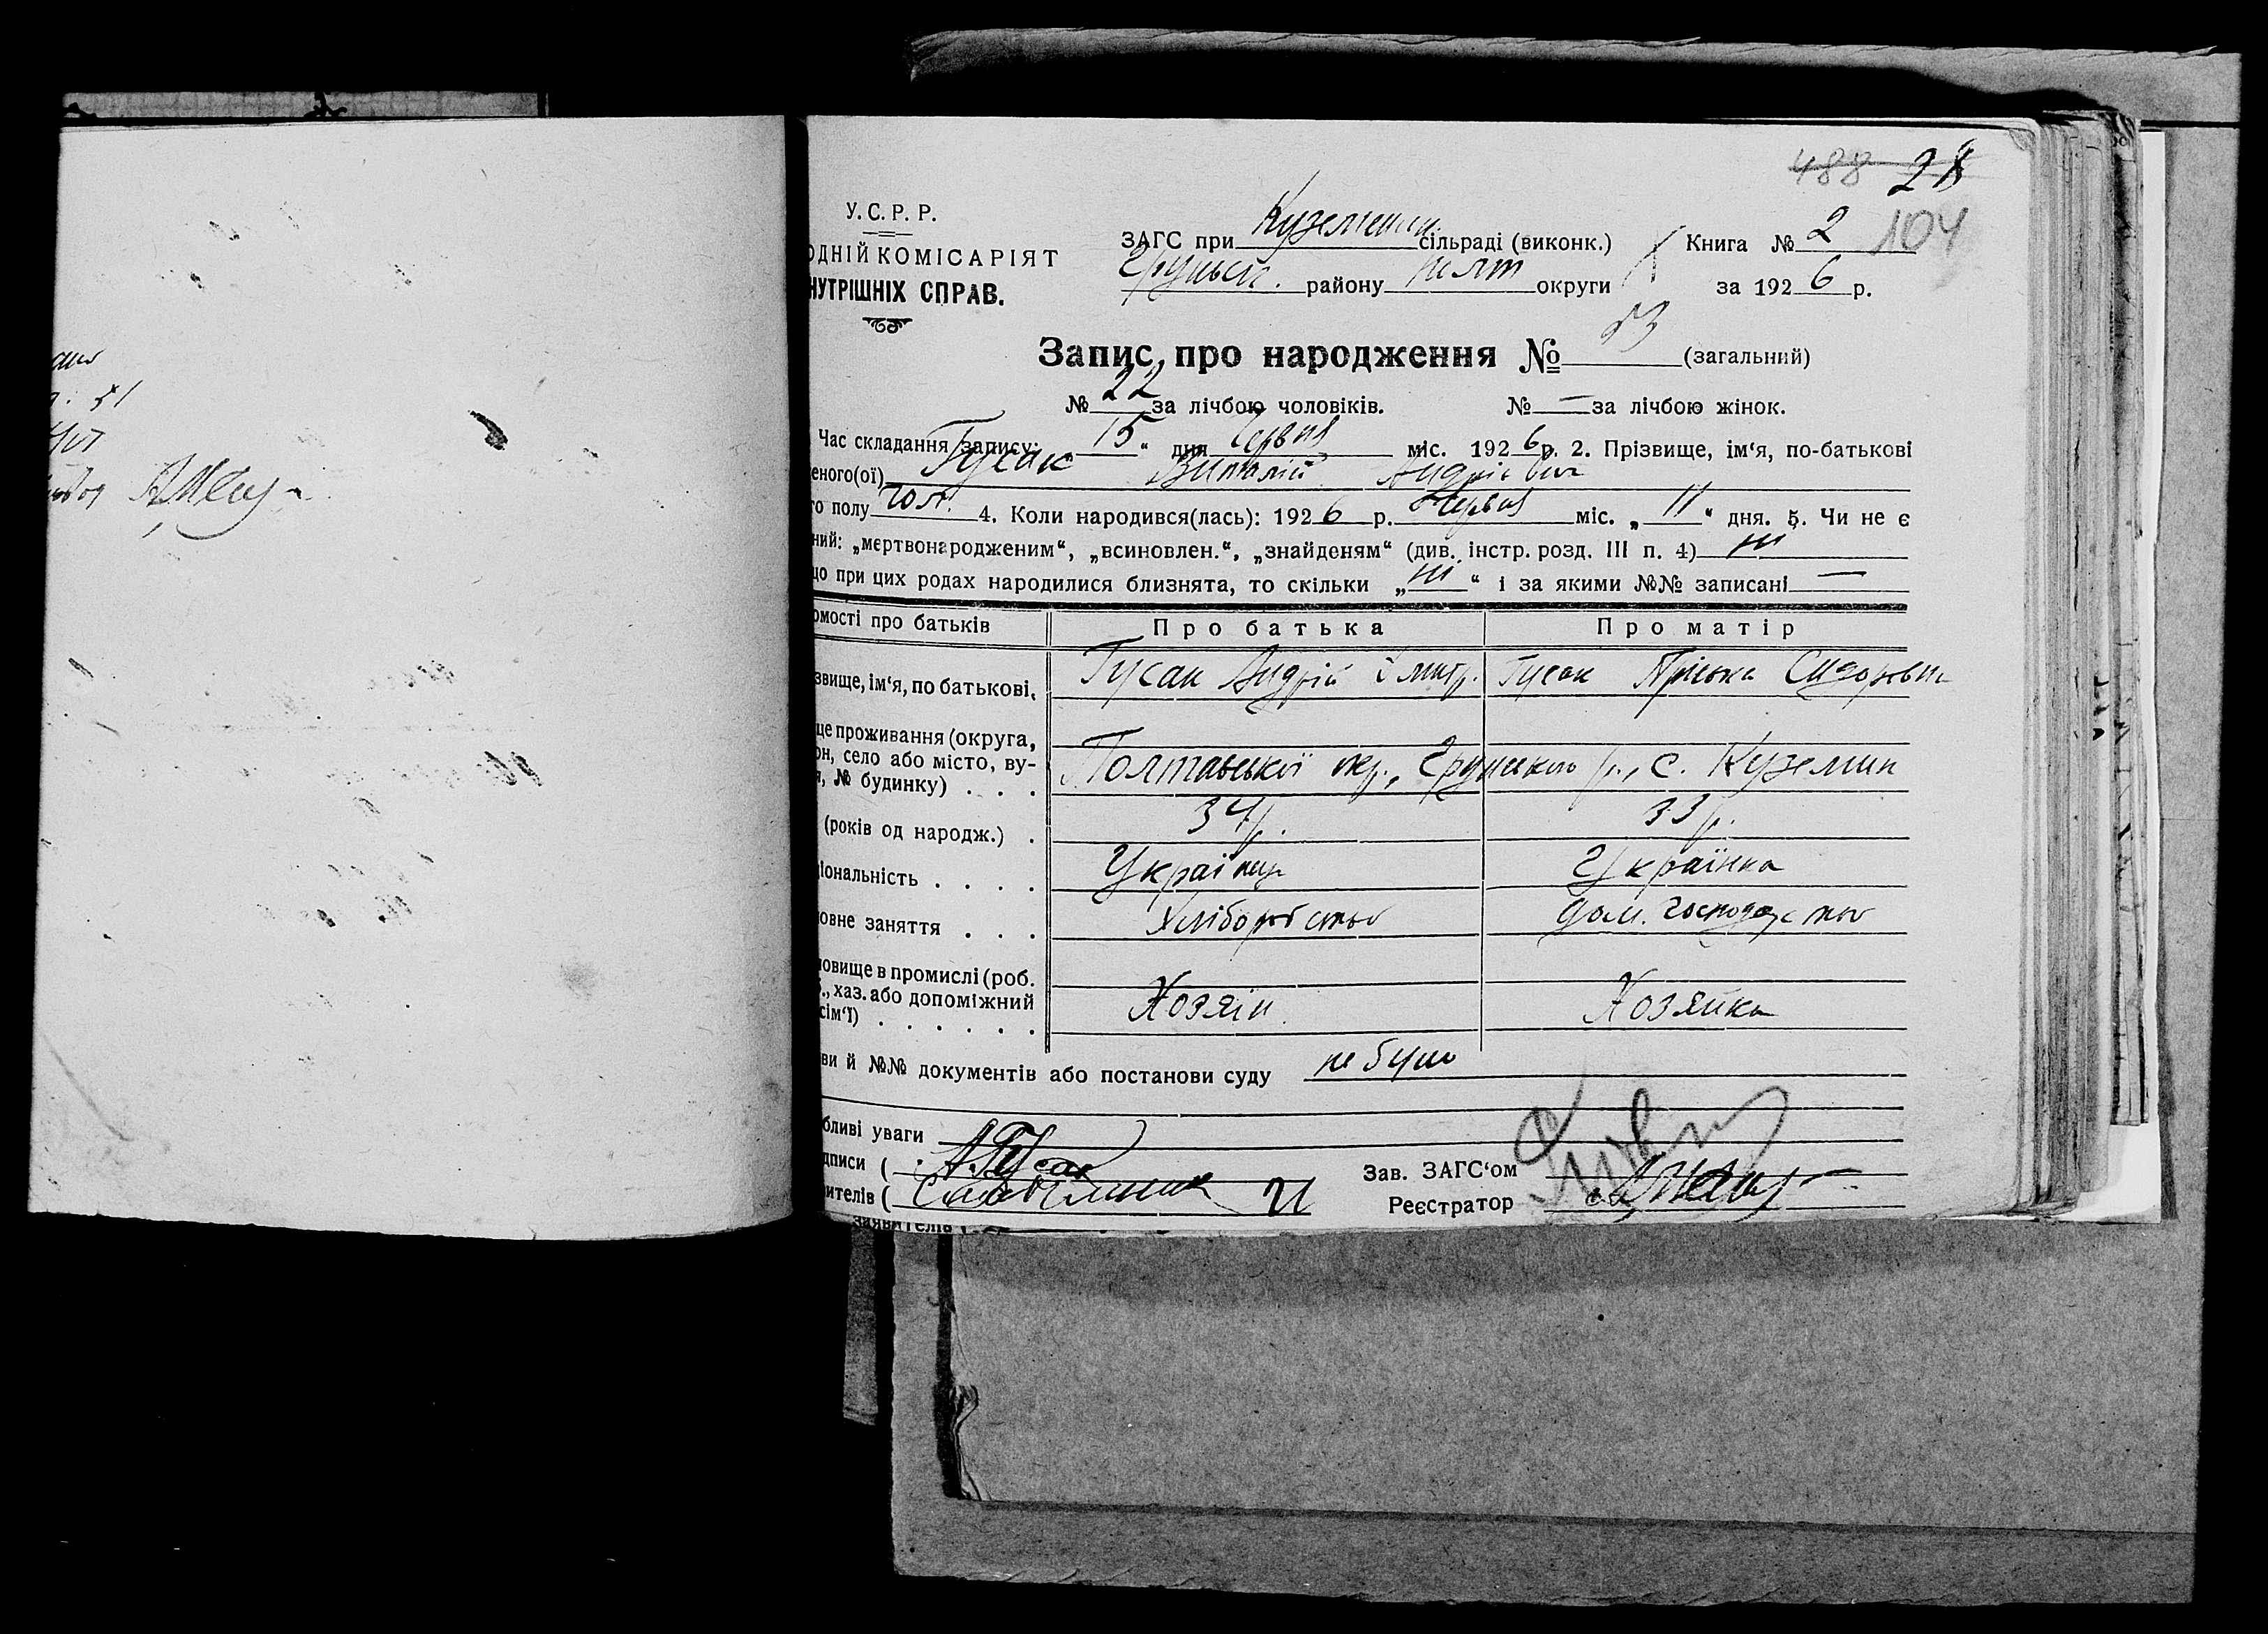 488 28
У. С. Р. Р.
ЗАГС при Куземин. сільраді (виконк.) Книга № 2 104
ОДНІЙ КОМІСАРІЯТ
Грунськ. району Полт округи за 1926 р.
НУТРІШНІХ СПРАВ.
Запис про народження № 53 (загальний)
№ 22 за лічбою чоловіків. № — за лічбою жінок.
Час складання запису: „15“ дня Червня міс. 1926 р. 2. Прізвище, ім‘я, по-батькові
еного(ої) Гусак Виталій Андрієвич
го полу чол. 4. Коли народився(лась): 1926 р. Червня міс. „11“ дня. 5. Чи не є
ний: „мертвонародженим“, „всиновлен.“, „знайденям“ (див. інстр. розд. III п. 4) ні
що при цих родах народилися близнята, то скільки „ні“ і за якими №№ записані —
омості про батьків Про батька Про матір
звище, ім‘я, по батькові, Гусак Андрій Дмитр. Гусак Пріська Сидоровна
це проживання (округа,
он, село або місто, ву-
я, № будинку) . . . Полтавської окр., Грунського р., с. Куземин
(років од народж.) . 34 р. 33 р.
ціональність . . . . Українець Українка
овне заняття . . . Хліборобство Дом. господарство
новище в промислі (роб.
., хаз. або допоміжний
сім‘ї) . . . . . . Хозяїн Хозяйка
ви й №№ документів або постанови суду не було
бливі уваги
дписи ( А. Гусак Зав. ЗАГС‘ом
ителів ( Реєстратор
заявителів (